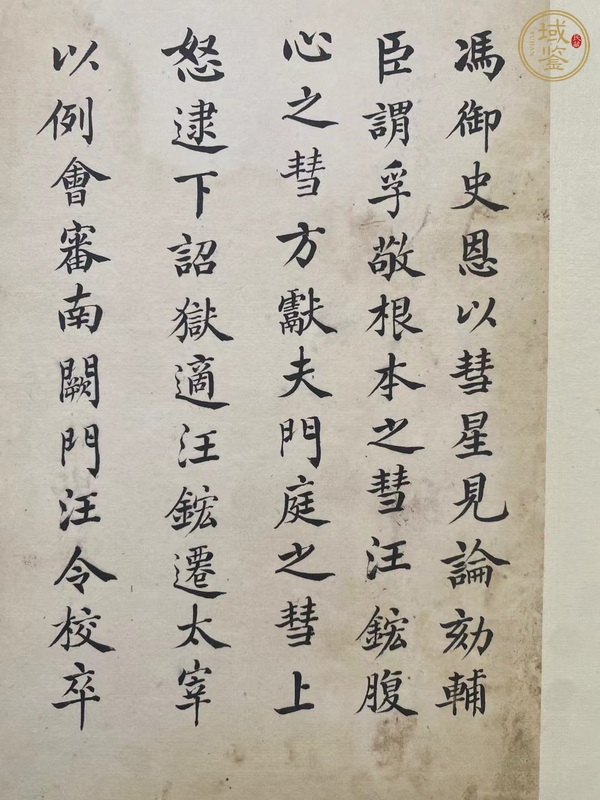 馮御史恩以彗星見論劾輔
臣謂孚敬根本之彗汪鋐腹
心之彗方獻夫門庭之彗上
怒逮下詔獄適汪鋐遷太宰
以例會審南闕門汪令校卒
域鑒